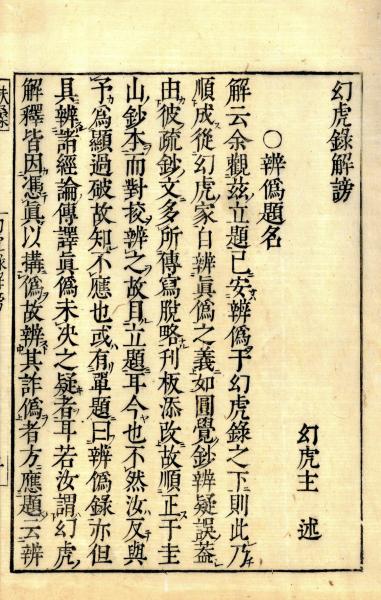 幻虎錄解謗
幻虎主 述
○辨僞題名
解云余觀茲立題已安辨僞于幻虎錄之下則此乃
順成從幻虎家自辨眞僞之義如圓覺鈔辨疑誤葢
由彼疏鈔文多所傳寫脫略刊板添改故順正于圭
山鈔本而對挍辨之故且立題耳今也不然汝反與
予爲顯過破故知不應也或有單題曰辨僞錄亦但
具辨諸經論傳譯眞僞未决之疑者耳若汝謂幻虎
解釋皆因馮眞以搆僞故辨其詐僞者方應題云辨